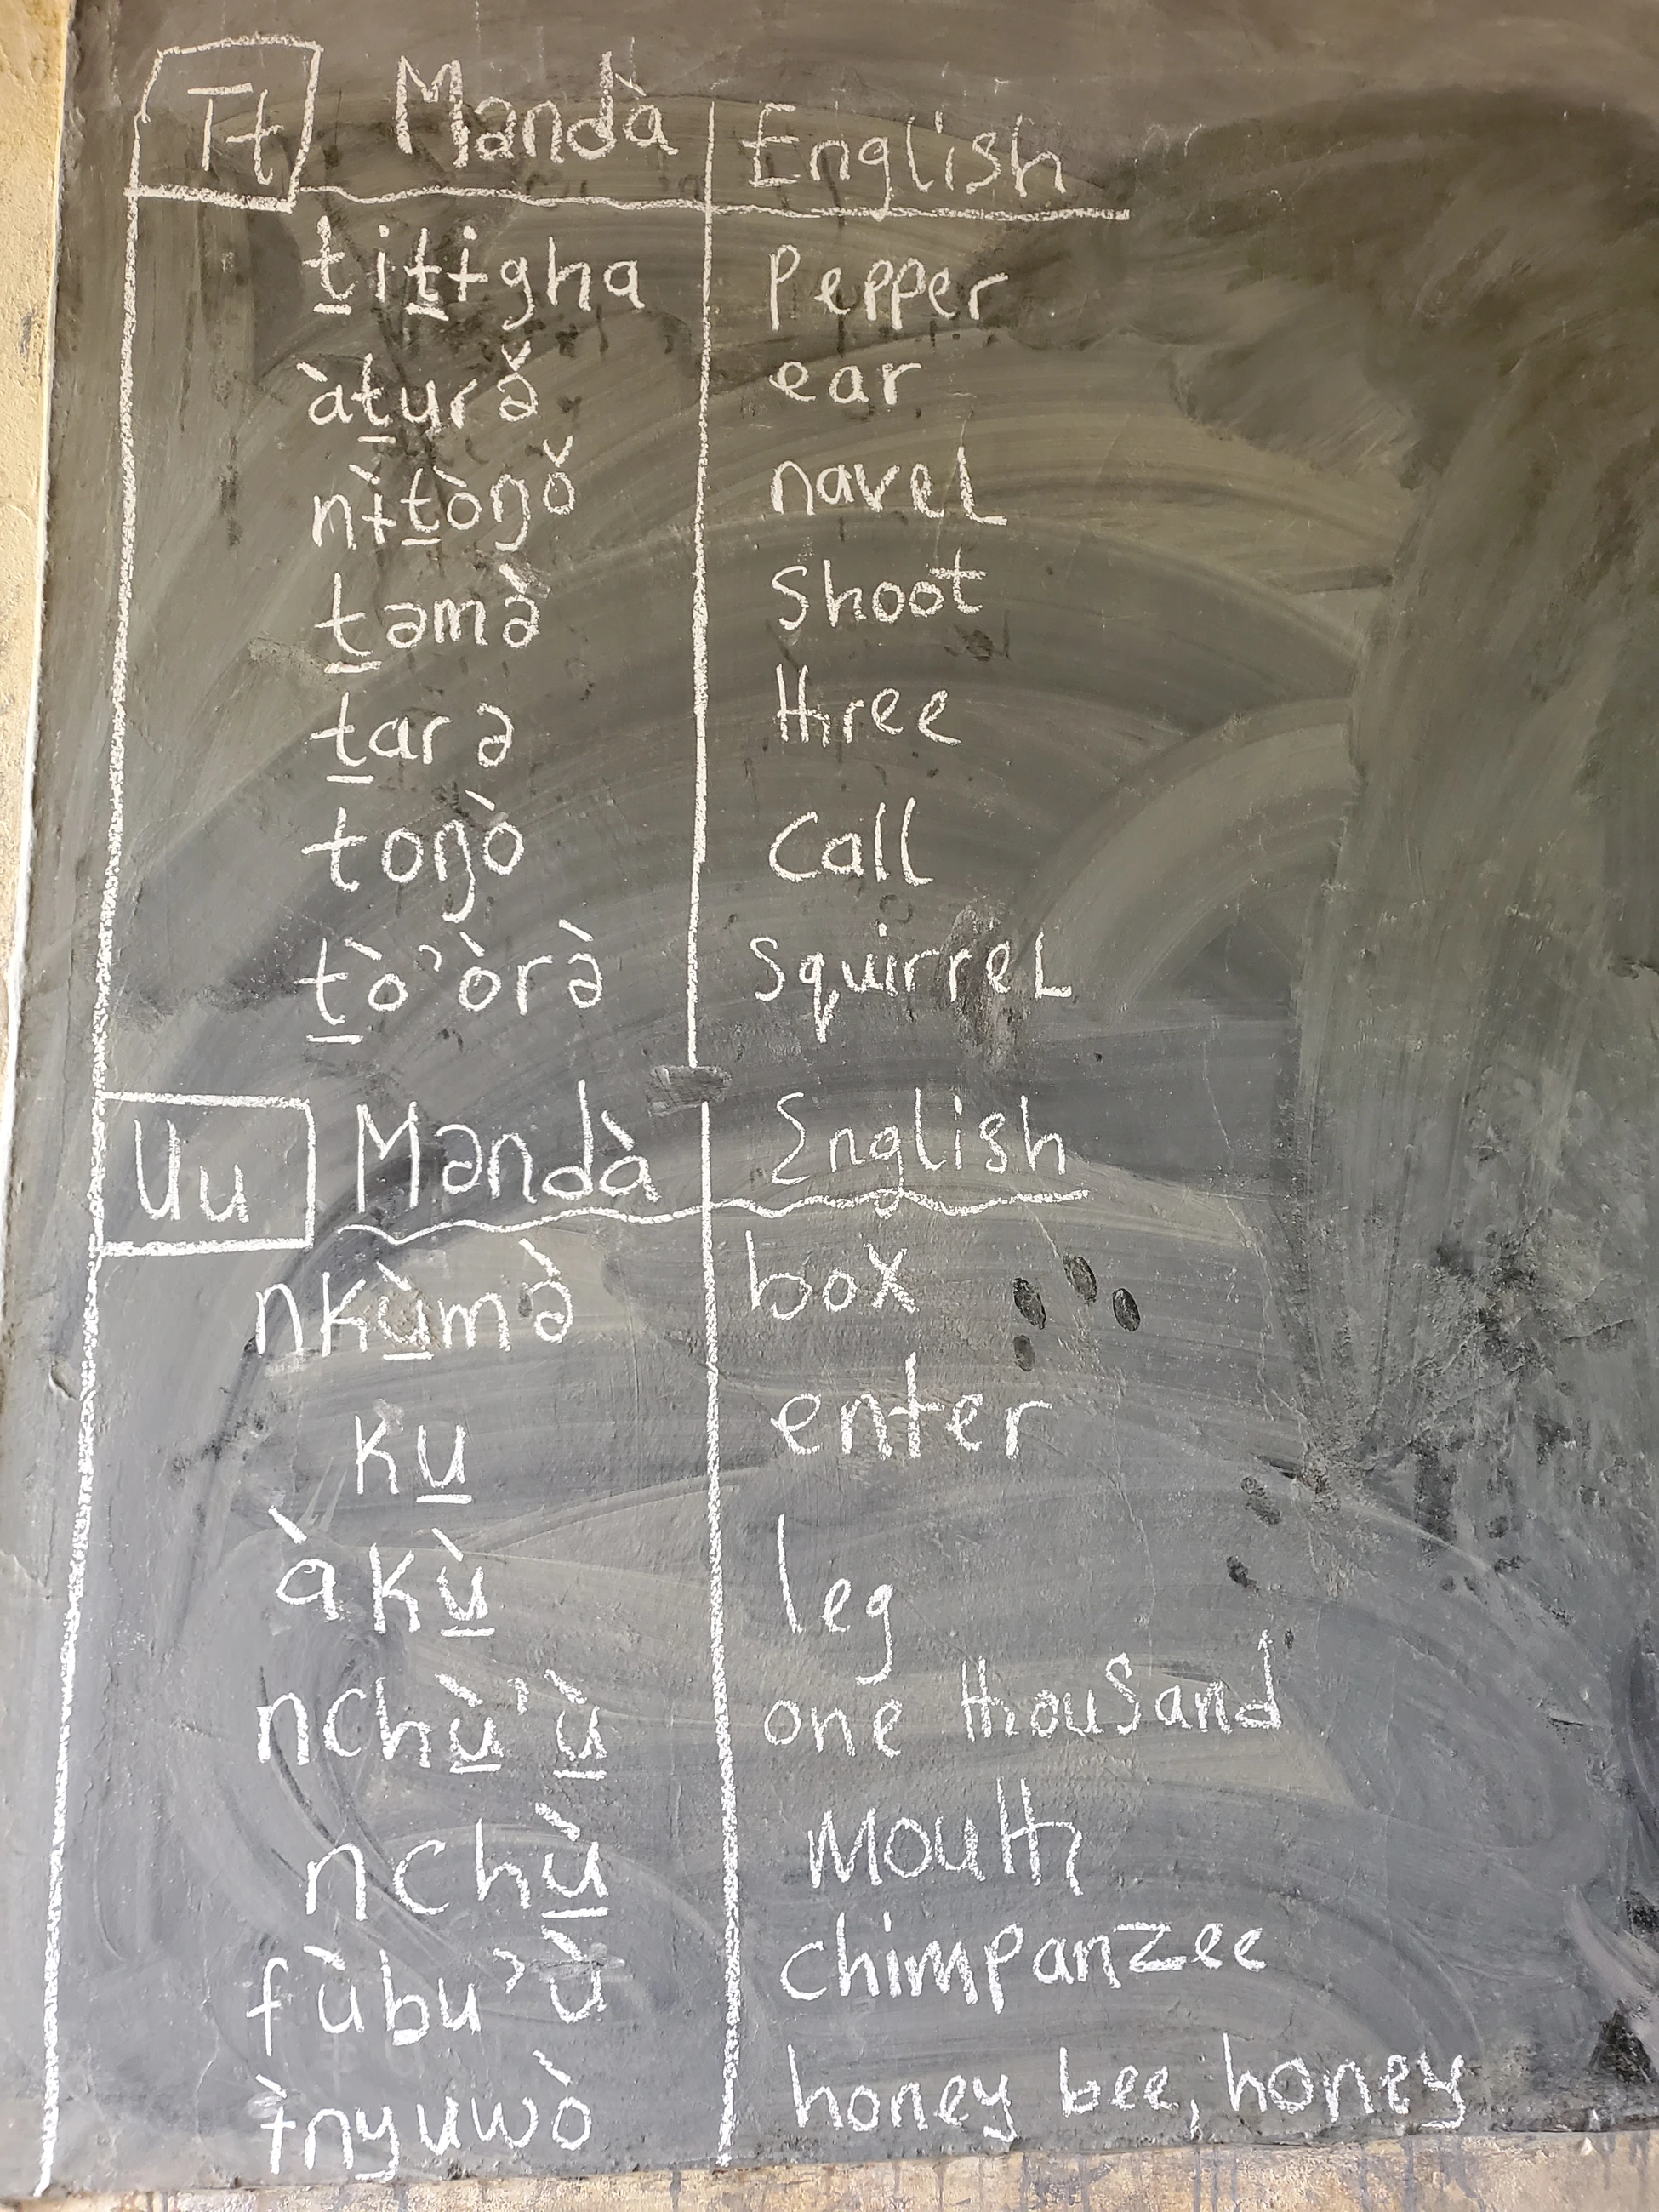 Tt Məndà English
ṯiṯɨgha pepper
àṯurə̌ ear
nɨ̀ṯòŋǒ navel
ṯəmə̀ shoot
ṯarə three
toŋò call
ṯò'òrə̀ squirrel
Uu Məndà English
nkù̱mə̀ box
ku̱ enter
àkù̱ leg
nchù̱'ù̱ one thousand
nchù̱ mouth
fùbu'ù chimpanzee
ɨ̀nyuwò honey bee, honey